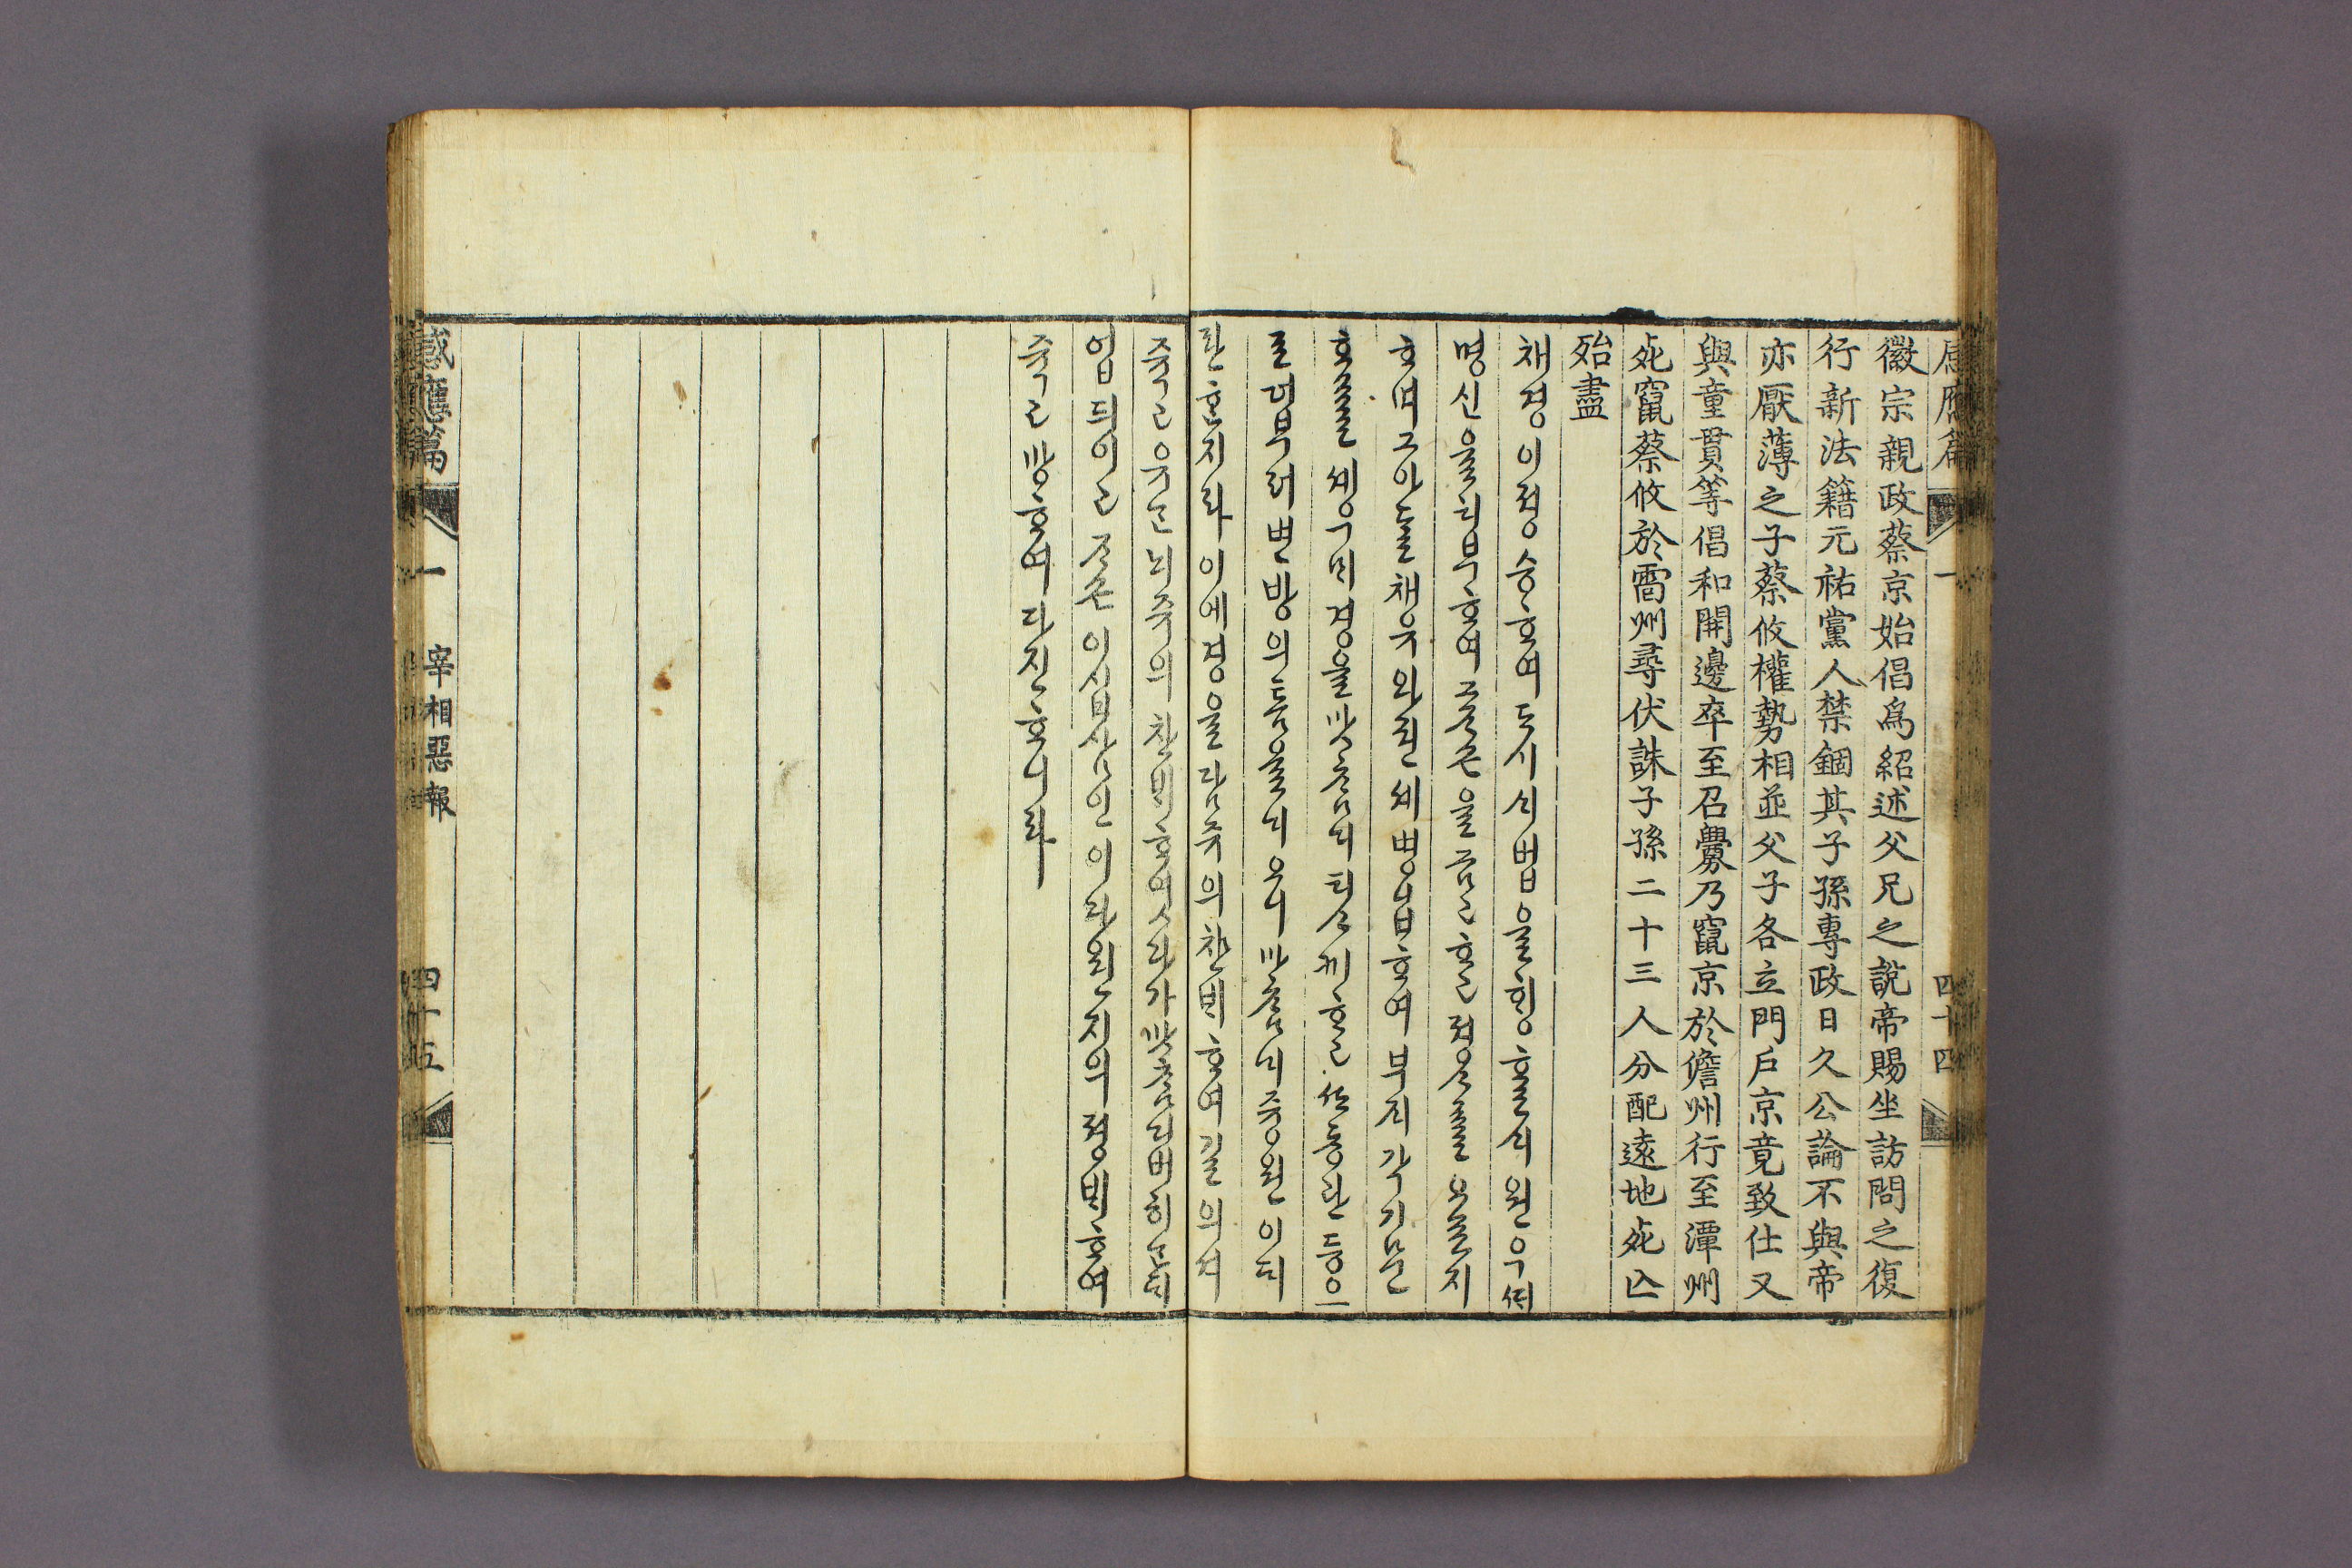 感應篇 一 四十四
徽宗親政蔡京始倡爲紹述父兄之說帝賜坐訪問之復
行新法籍元祐黨人禁錮其子孫專政日久公論不與帝
亦厭薄之子蔡攸權勢相並父子各立門戶京竟致仕又
與童貫等倡和開邊卒至召釁乃竄京於儋州行至潭州
死竄蔡攸於雷州尋伏誅子孫二十三人分配遠地死亡
殆盡
채경이졍승ᄒᆞ여도시ᄉᆡ법을ᄒᆡᆼᄒᆞᆯᄉᆡ원우ᄯᅢ
명신을ᄂᆡ부ᄒᆞ여ᄌᆞ손을금고ᄒᆞ고졍ᄉᆞᄅᆞᆯ오ᄅᆞ지
ᄒᆞ며그아ᄃᆞᆯ채유와권셰병닙ᄒᆞ여부ᄌᆡ각기문
호ᄅᆞᆯ셰우ᄆᆡ경을ᄆᆞᄎᆞᆷᄂᆡᄐᆡᄉᆞ케ᄒᆞ고ᄯᅩ동관등으
로더부러변방의틈을ᄂᆡ오니ᄆᆞᄎᆞᆷᄂᆡ즁원이ᄃᆡ
란ᄒᆞᆫ지라이에경을담쥬의찬ᄇᆡᄒᆞ여길의셔
죽고유ᄂᆞᆫ뇌쥬의찬ᄇᆡᄒᆞ엿다가ᄆᆞᄎᆞᆷᄂᆡ버히ᄂᆞᆫᄃᆡ
업듸이고ᄌᆞ손이십삼인이다원지의졍ᄇᆡᄒᆞ여
죽고망ᄒᆞ여다진ᄒᆞ니라
感應篇 一 宰相惡報 四十五